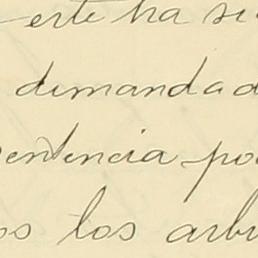 erte ha si
demandad
sentencia po
os los arbi